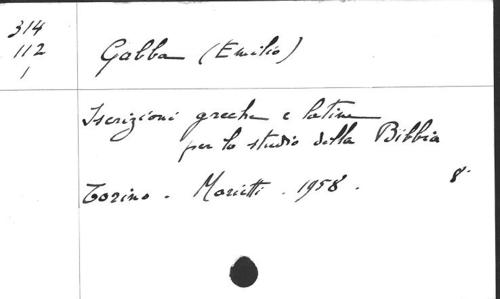 314
112
1
Gabba (Emilio)
Iscrizioni greche e latine
per lo studio della Bibbia
Torino - Marietti - 1958 -
8°